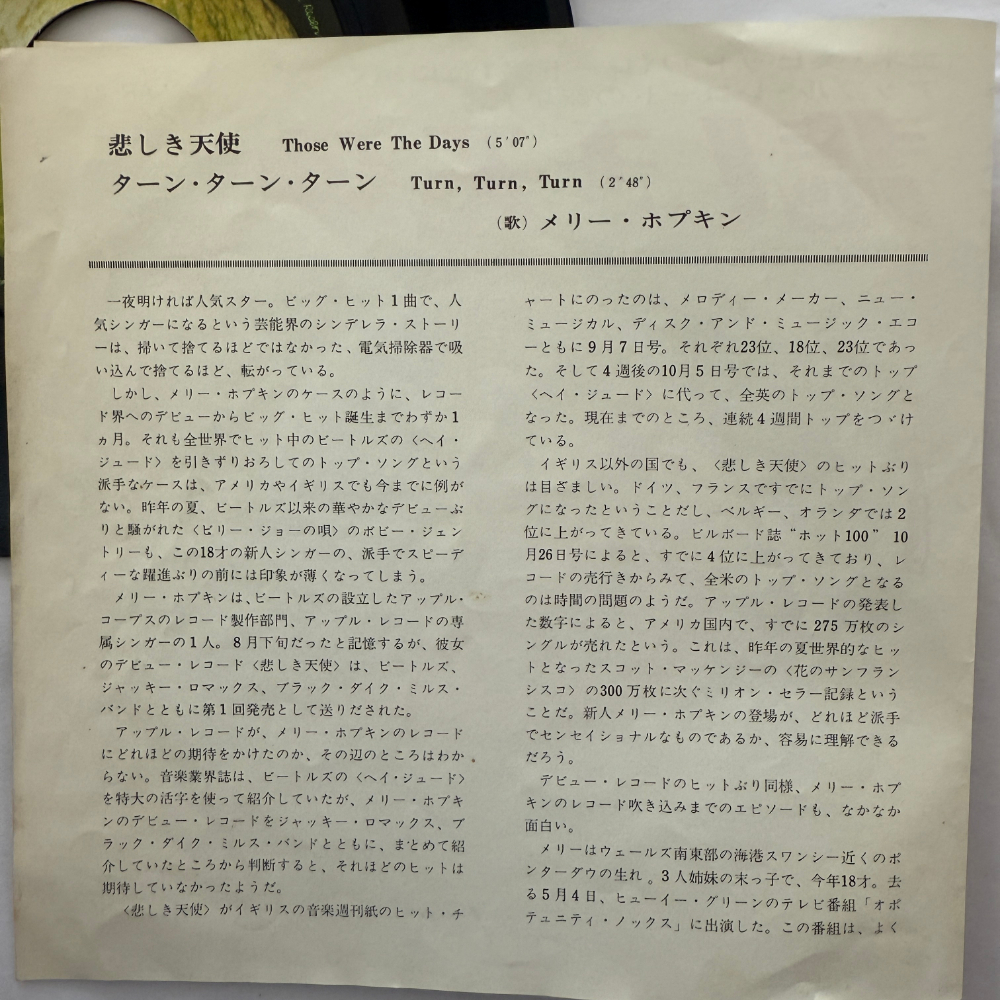 悲しき天使 Those Were The Days (5′07″)
ターン・ターン・ターン Turn, Turn, Turn (2′48″)
(歌) メリー・ホプキン
一夜明ければ人気スター。ビッグ・ヒット1曲で、人
気シンガーになるという芸能界のシンデレラ・ストーリ
ーは、掃いて捨てるほどではなかった、電気掃除器で吸
い込んで捨てるほど、転がっている。
しかし、メリー・ホプキンのケースのように、レコー
ド界へのデビューからビッグ・ヒット誕生までわずか1
ヵ月。それも全世界でヒット中のビートルズの〈ヘイ・
ジュード〉を引きずりおろしてのトップ・ソングという
派手なケースは、アメリカやイギリスでも今までに例が
ない。昨年の夏、ビートルズ以来の華やかなデビューぶ
りと騒がれた〈ビリー・ジョーの唄〉のボビー・ジェン
トリーも、この18才の新人シンガーの、派手でスピーデ
ィーな躍進ぶりの前には印象が薄くなってしまう。
メリー・ホプキンは、ビートルズの設立したアップル・
コープスのレコード製作部門、アップル・レコードの専
属シンガーの1人。8月下旬だったと記憶するが、彼女
のデビュー・レコード〈悲しき天使〉は、ビートルズ、
ジャッキー・ロマックス、ブラック・ダイク・ミルス・
バンドとともに第1回発売として送りだされた。
アップル・レコードが、メリー・ホプキンのレコード
にどれほどの期待をかけたのか、その辺のところはわか
らない。音楽業界誌は、ビートルズの〈ヘイ・ジュード〉
を特大の活字を使って紹介していたが、メリー・ホプキ
ンのデビュー・レコードをジャッキー・ロマックス、ブ
ラック・ダイク・ミルス・バンドとともに、まとめて紹
介していたところから判断すると、それほどのヒットは
期待していなかったようだ。
〈悲しき天使〉がイギリスの音楽週刊紙のヒット・チ
ャートにのったのは、メロディー・メーカー、ニュー・
ミュージカル、ディスク・アンド・ミュージック・エコ
ーともに9月7日号。それぞれ23位、18位、23位であっ
た。そして4週後の10月5日号では、それまでのトップ
〈ヘイ・ジュード〉に代って、全英のトップ・ソングと
なった。現在までのところ、連続4週間トップをつゞけ
ている。
イギリス以外の国でも、〈悲しき天使〉のヒットぶり
は目ざましい。ドイツ、フランスですでにトップ・ソン
グになったということだし、ベルギー、オランダでは2
位に上がってきている。ビルボード誌“ホット100” 10
月26日号によると、すでに4位に上がってきており、レ
コードの売行きからみて、全米のトップ・ソングとなる
のは時間の問題のようだ。アップル・レコードの発表し
た数字によると、アメリカ国内で、すでに275万枚のシ
ングルが売れたという。これは、昨年の夏世界的なヒッ
トとなったスコット・マッケンジーの〈花のサンフラン
シスコ〉の300万枚に次ぐミリオン・セラー記録という
ことだ。新人メリー・ホプキンの登場が、どれほど派手
でセンセイショナルなものであるか、容易に理解できる
だろう。
デビュー・レコードのヒットぶり同様、メリー・ホプ
キンのレコード吹き込みまでのエピソードも、なかなか
面白い。
メリーはウェールズ南東部の海港スワンシー近くのポ
ンターダウの生れ。3人姉妹の末っ子で、今年18才。去
る5月4日、ヒューイー・グリーンのテレビ番組「オポ
テュニティ・ノックス」に出演した。この番組は、よく